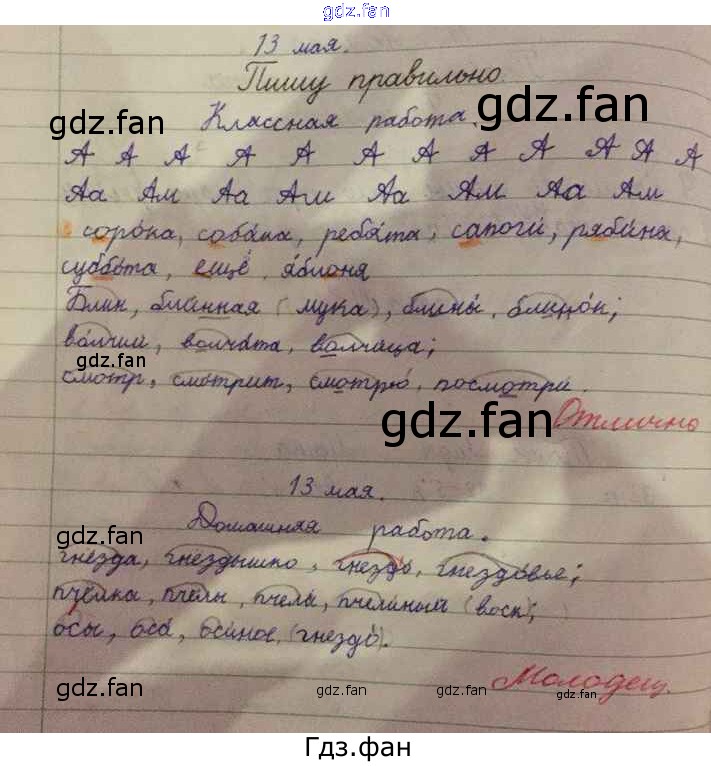 gdz.fan
13 мая.
Пишу правильно
gdz.fan
gdz.fan
Классная работа.
А А А А А А А А А А А А
Аа Ам Аа Ам Аа Ам Аа Ам
сорока, собака, ребята, сапоги, рябина,
суббота, ещё, яблоня
Блин, блинная (мука), блины, блинок;
волчий, волчата, волчица;
gdz.fan
смотр, смотрит, смотрю, посмотри.
gdz.fan
Отлично
13 мая.
Домашняя работа.
gdz.fan
gdz.fan
гнёзда, гнёздышко, гнездо, гнездовье;
пчёлка, пчёлы, пчела, пчелиный (воск);
осы, оса, осиное (гнездо).
Молодец.
gdz.fan
gdz.fan
gdz.fan
gdz.fan
Гдз.фан